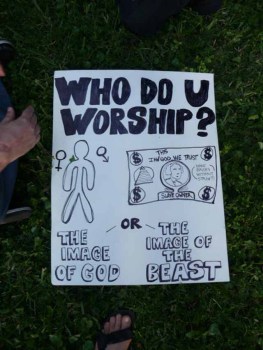 WHO DO U
WORSHIP?
THIS
IN GOD WE TRUST
$ $
$ $
SLAVE OWNER
OR
THE
IMAGE
OF GOD
THE
IMAGE OF
THE
BEAST